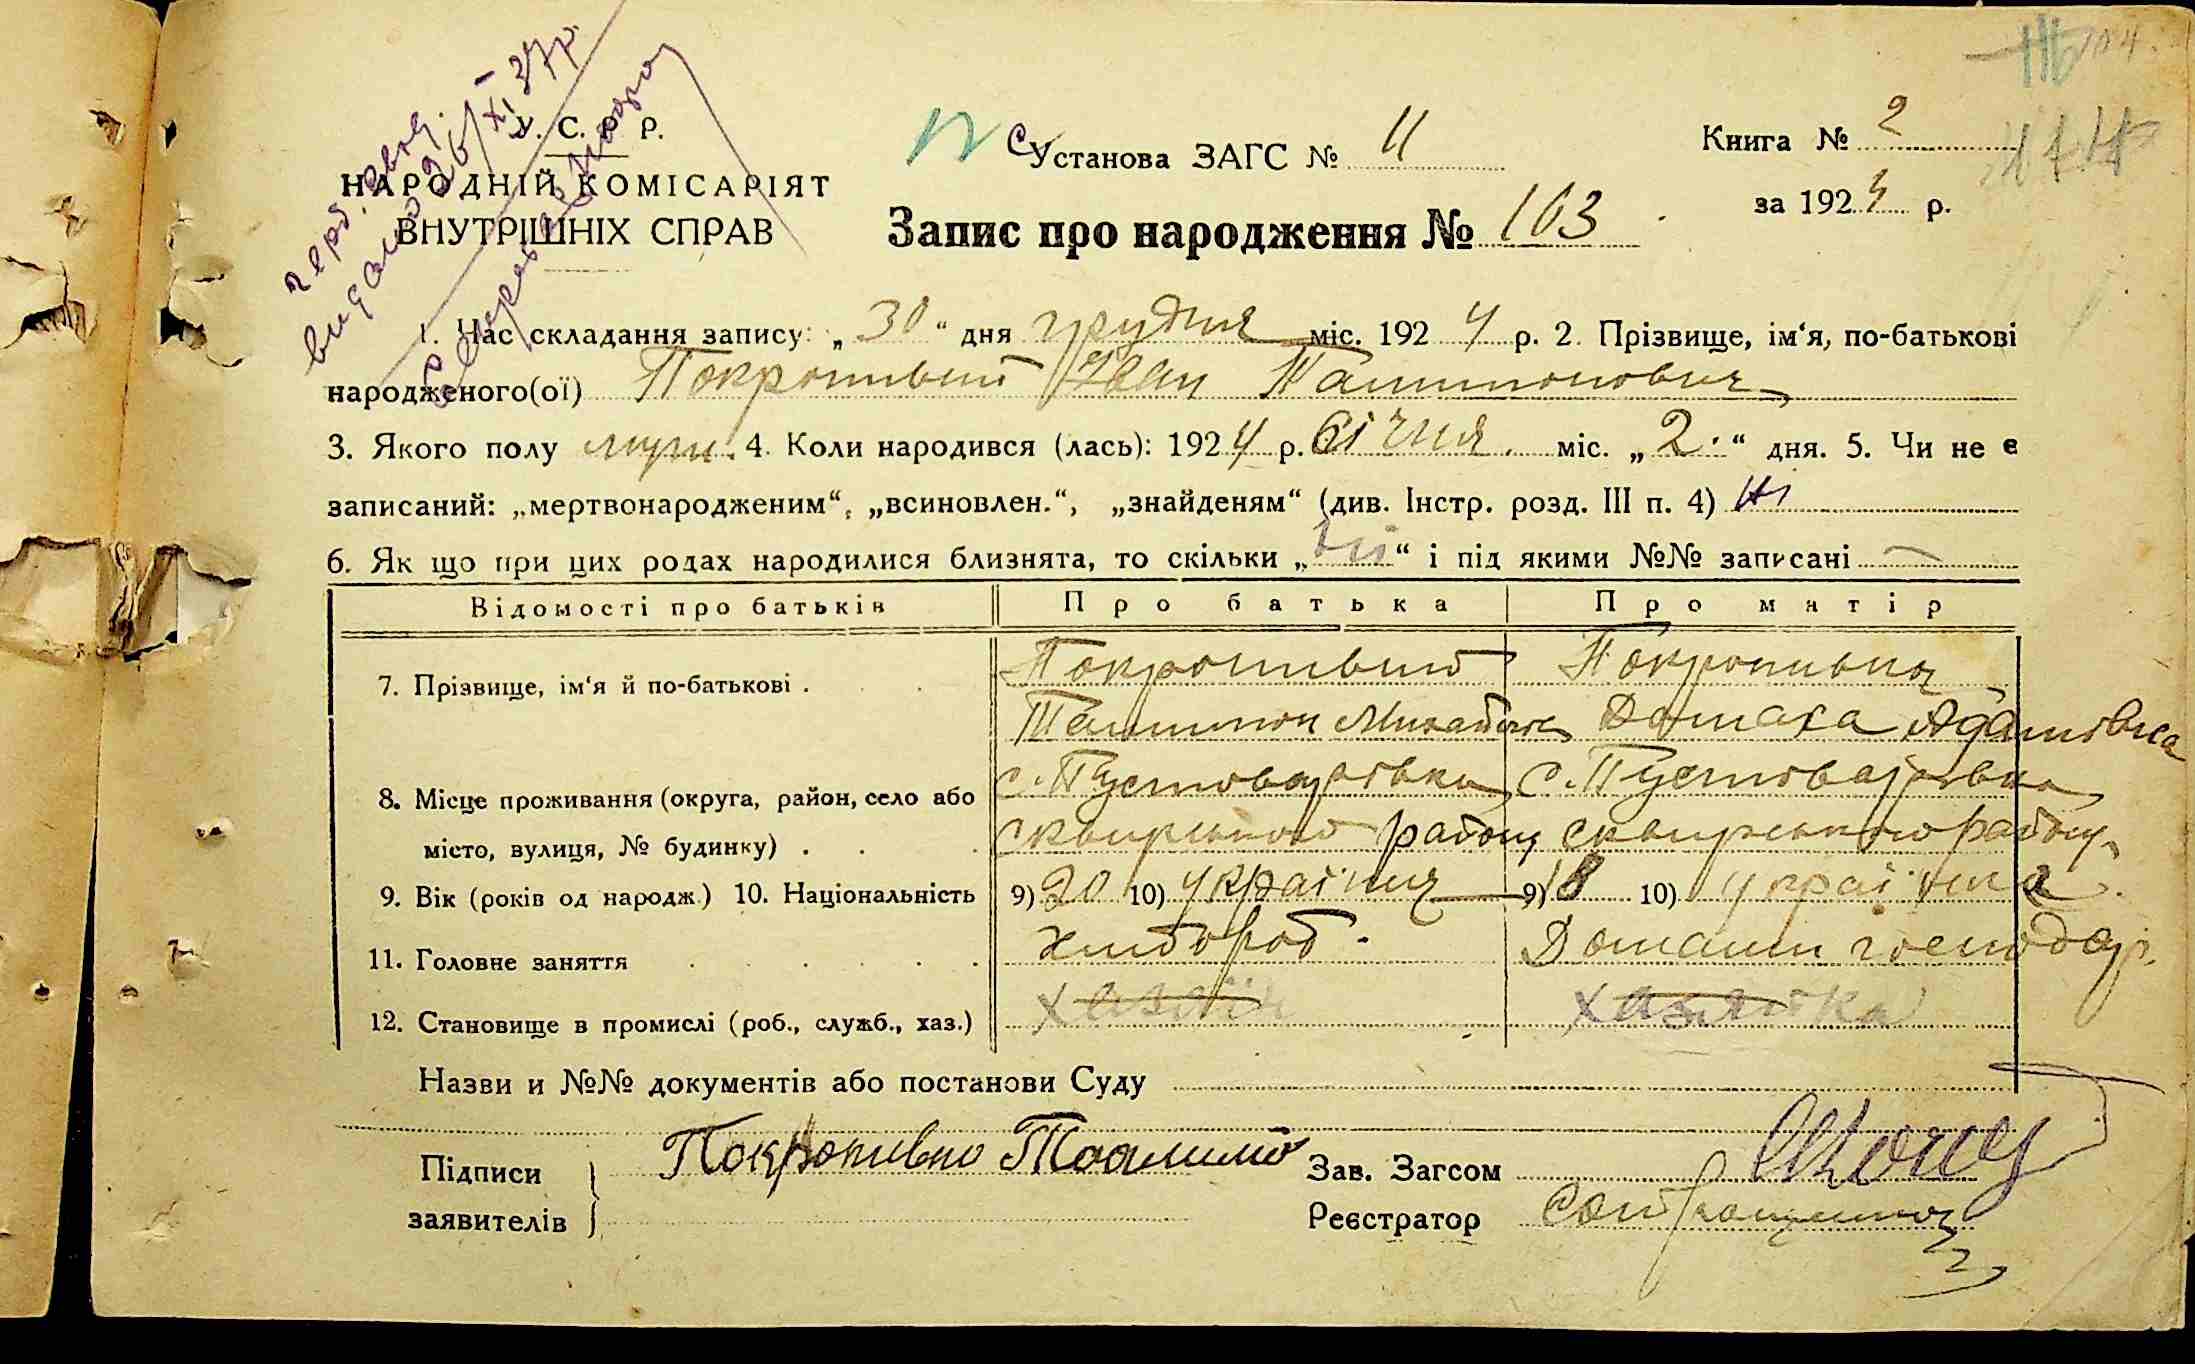 видано 26/XI 37р.
У. С. Р. Р.
НАРОДНІЙ КОМІСАРІЯТ
ВНУТРІШНІХ СПРАВ
Установа ЗАГС № 11
Книга № 2
за 1924 р.
Запис про народження № 103
1. Час складання запису: „30“ дня грудня міс. 1924 р. 2. Прізвище, ім‘я, по-батькові
народженого(ої) Покропивний Іван
3. Якого полу муж. 4. Коли народився (лась): 1924 р. січня міс. „2“ дня. 5. Чи не є
записаний: „мертвонародженим“, „всиновлен.“, „знайденям“ (див. Інстр. розд. III п. 4) ні
6. Як що при цих родах народилися близнята, то скільки „ні“ і під якими №№ записані —
Відомості про батьків Про батька Про матір
7. Прізвище, ім‘я й по-батькові . Покропивний Покропивна
Домаха Адамівна
8. Місце проживання (округа, район, село або с. Пустоварівка с. Пустоварівка
місто, вулиця, № будинку) . сквирського району сквирського району
9. Вік (років од народж.) 10. Національність 9) 20 10) україниц 9) 18 10) українка
11. Головне заняття хлібороб. Домашн господар.
12. Становище в промислі (роб., служб., хаз.) хазяїн хазяйка
Назви и №№ документів або постанови Суду
Підписи Покропивно
заявителів
Зав. Загсом
Реєстратор